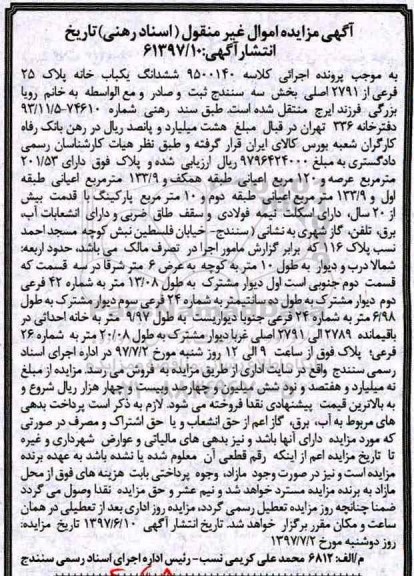 آگهی مزایده اموال غیر منقول (اسناد رهنی) تاریخ
انتشار آگهی: ۶۱۳۹۷/۱۰
به موجب پرونده اجرائی کلاسه ۹۵۰۰۱۴۰ ششدانگ یکباب خانه پلاک ۲۵
فرعی از ۲۷۹۱ اصلی بخش سه سنندج ثبت و صادر و مع الواسطه به خانم رویا
بزرگی فرزند ایرج منتقل شده است. طبق سند رهنی شماره ۷۴۶۱۰-۹۳/۱۱/۵
دفترخانه ۳۳۶ تهران در قبال مبلغ هشت میلیارد و پانصد ریال در رهن بانک رفاه
کارگران شعبه بورس کالای ایران قرار گرفته و طبق نظر هیات کارشناسان رسمی
دادگستری به مبلغ ۹۷۹۶۴۲۴۰۰۰ ریال ارزیابی شده و پلاک فوق دارای ۲۰۱/۵۳
مترمربع عرصه و ۱۲۰ مربع اعیانی طبقه همکف و ۱۳۳/۹ مترمربع اعیانی طبقه
اول و ۱۳۳/۹ متر مربع اعیانی طبقه دوم و ۱۰ متر مربع پارکینگ با قدمت بیش
از ۲۰ سال، دارای اسکلت نیمه فولادی و سقف طاق ضربی و دارای انشعابات آب،
برق، تلفن، گاز شهری به نشانی (سنندج- خیابان فلسطین نبش کوچه مسجد احمد
نسب پلاک ۱۱۶ که برابر گزارش مامور اجرا در تصرف مالک می باشد، حدود اربعه:
شمالا درب و دیوار به طول ۱۰ متر به کوچه به عرض ۶ متر شرقا در سه قسمت که
قسمت دوم جنوبی است اول دیوار مشترک به طول ۱۳/۰۸ متر به شماره ۴۲ فرعی
دوم دیوار مشترک به طول ده سانتیمتر به شماره ۲۴ فرعی سوم دیوار مشترک به طول
۶/۹۸ متر به شماره ۲۴ فرعی جنوبا دیواریست به طول ۹/۹۷ متر به خانه احداثی در
باقیمانده ۲۷۸۹ الی ۲۷۹۱ اصلی غربا دیوار مشترک به طول ۲۰/۰۸ متر به شماره ۲۶
فرعی؛ پلاک فوق از ساعت ۹ الی ۱۲ روز شنبه مورخ ۹۷/۷/۲ در اداره اجرای اسناد
رسمی سنندج واقع در سایت اداری از طریق مزایده به فروش می رسد. مزایده از مبلغ
نه میلیارد و هفتصد و نود شش میلیون و چهارصد وبیست و چهار هزار ریال شروع و
به بالاترین قیمت پیشنهادی نقدا فروخته می شود. لازم به ذکر است پرداخت بدهی
های مربوط به آب، برق، گاز اعم از حق انشعاب و یا حق اشتراک و مصرف در صورتی
که مورد مزایده دارای آنها باشد و نیز بدهی های مالیاتی و عوارض شهرداری و غیره
تا تاریخ مزایده اعم از اینکه رقم قطعی آن معلوم شده یا نشده باشد به عهده برنده
مزایده است و نیز در صورت وجود مازاد، وجوه پرداختی بابت هزینه های فوق از محل
مازاد به برنده مزایده مسترد خواهد شد و نیم عشر و حق مزایده نقدا وصول می گردد
ضمنا چنانچه روز مزایده تعطیل رسمی گردد، مزایده روز اداری بعد از تعطیلی در همان
ساعت و مکان مقرر برگزار خواهد شد. تاریخ انتشار آگهی ۱۳۹۷/۶/۱۰ تاریخ مزایده:
روز دوشنبه مورخ ۱۳۹۷/۷/۲
م/الف: ۶۸۱۲ محمد علی کریمی نسب - رئیس اداره اجرای اسناد رسمی سنندج